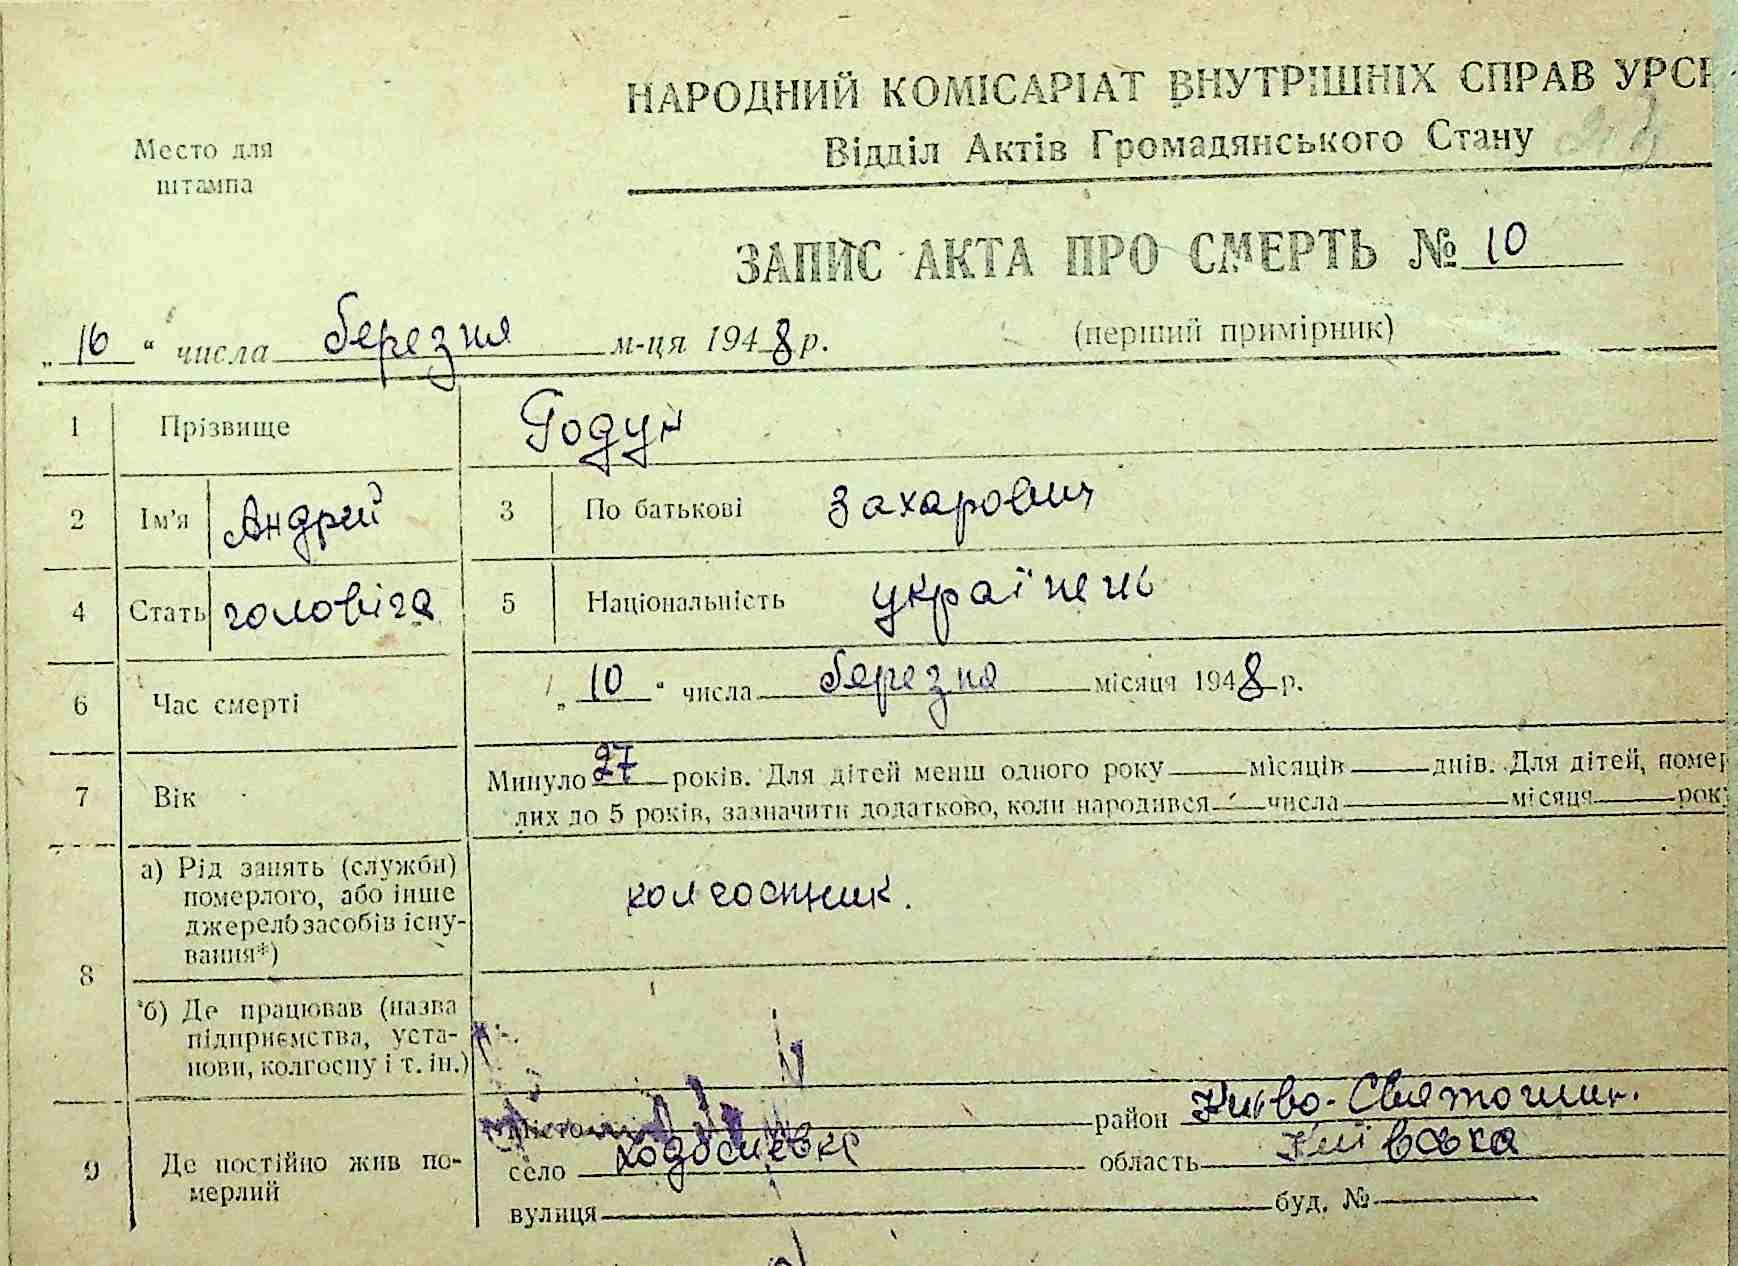 НАРОДНИЙ КОМІСАРІАТ ВНУТРІШНІХ СПРАВ УРСР
Відділ Актів Громадянського Стану
Место для
штампа
ЗАПИС АКТА ПРО СМЕРТЬ № 10
„16“ числа березня м-ця 1948 р. (перший примірник)
1 Прізвище Годун
2 Ім'я Андрей 3 По батькові Захарович
4 Стать чоловіча 5 Національність українець
6 Час смерті „10“ числа березня місяця 1948 р.
7 Вік Минуло 27 років. Для дітей менш одного року місяців днів. Для дітей, помер
лих до 5 років, зазначити додатково, коли народився числа місяця року
8 а) Рід занять (служби)
померлого, або інше
джерело засобів існу-
вання*) колгоспник.
б) Де працював (назва
підприємства, уста-
нови, колгоспу і т. ін.)
9 Де постійно жив по-
мерлий
місто район Києво-Святошин.
село Ходосіевка область Київська
вулиця буд. №